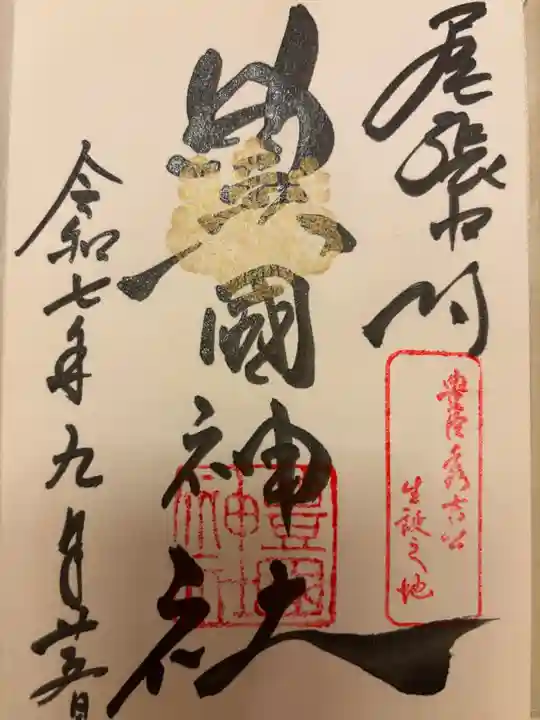 尾張中村
豊臣秀吉公
生誕之地
豊國神社
豊國神社
令和七年九月廿五日